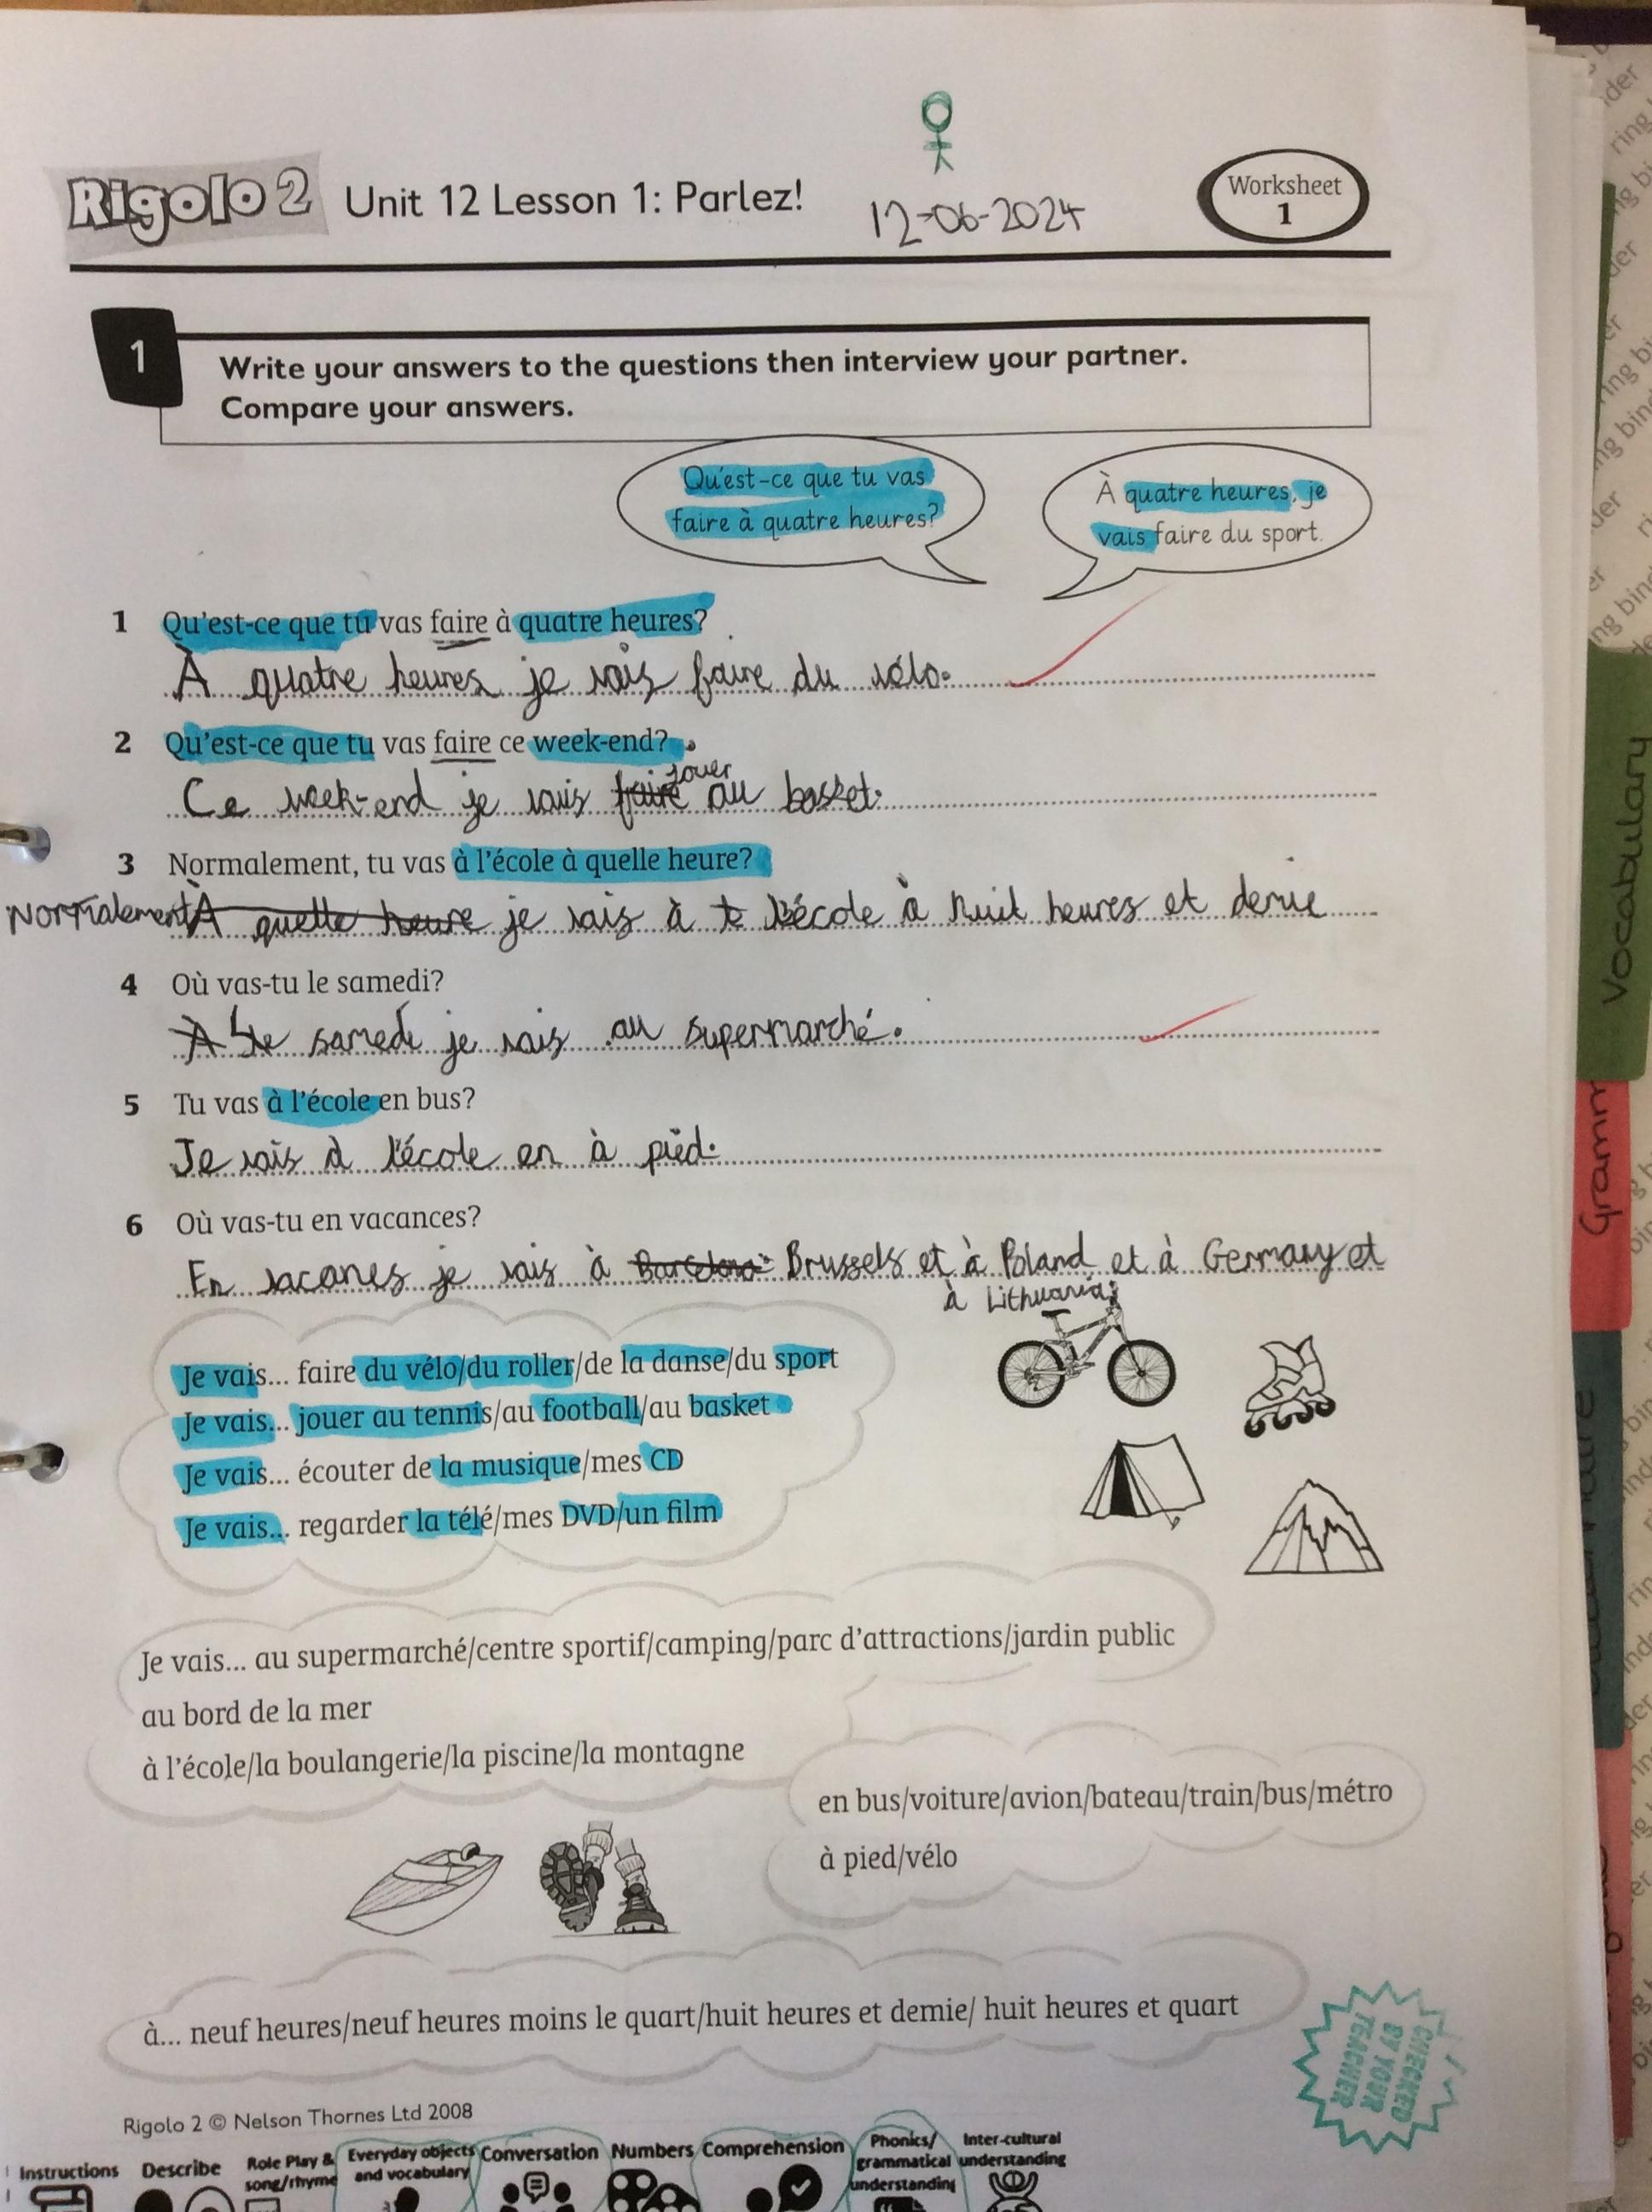 Rigolo 2 Unit 12 Lesson 1: Parlez!
12-06-2024
Worksheet
1
1
Write your answers to the questions then interview your partner.
Compare your answers.
Qu'est-ce que tu vas
faire à quatre heures?
À quatre heures, je
vais faire du sport.
1 Qu'est-ce que tu vas faire à quatre heures?
À quatre heures je vais faire du vélo.
2 Qu'est-ce que tu vas faire ce week-end?
jouer
Ce week-end je vais faire au basket.
3 Normalement, tu vas à l'école à quelle heure?
Normalement À quelle heure je vais à l'école à huit heures et demie
4 Où vas-tu le samedi?
À Le samedi je vais au supermarché.
5 Tu vas à l'école en bus?
Je vais à l'école en à pied.
6 Où vas-tu en vacances?
En vacanes je vais à Barcelona Brussels et à Poland et à Germany et
à Lithuania.
Je vais... faire du vélo/du roller/de la danse/du sport
Je vais... jouer au tennis/au football/au basket
Je vais... écouter de la musique/mes CD
Je vais... regarder la télé/mes DVD/un film
Je vais... au supermarché/centre sportif/camping/parc d'attractions/jardin public
au bord de la mer
à l'école/la boulangerie/la piscine/la montagne
en bus/voiture/avion/bateau/train/bus/métro
à pied/vélo
à... neuf heures/neuf heures moins le quart/huit heures et demie/ huit heures et quart
CHECKED
BY YOUR
TEACHER
Rigolo 2 © Nelson Thornes Ltd 2008
Instructions
Describe
Role Play &
song/rhyme
Everyday objects
and vocabulary
Conversation
Numbers
Comprehension
Phonics/
grammatical
understanding
Inter-cultural
understanding
Vocabulary
Gramm